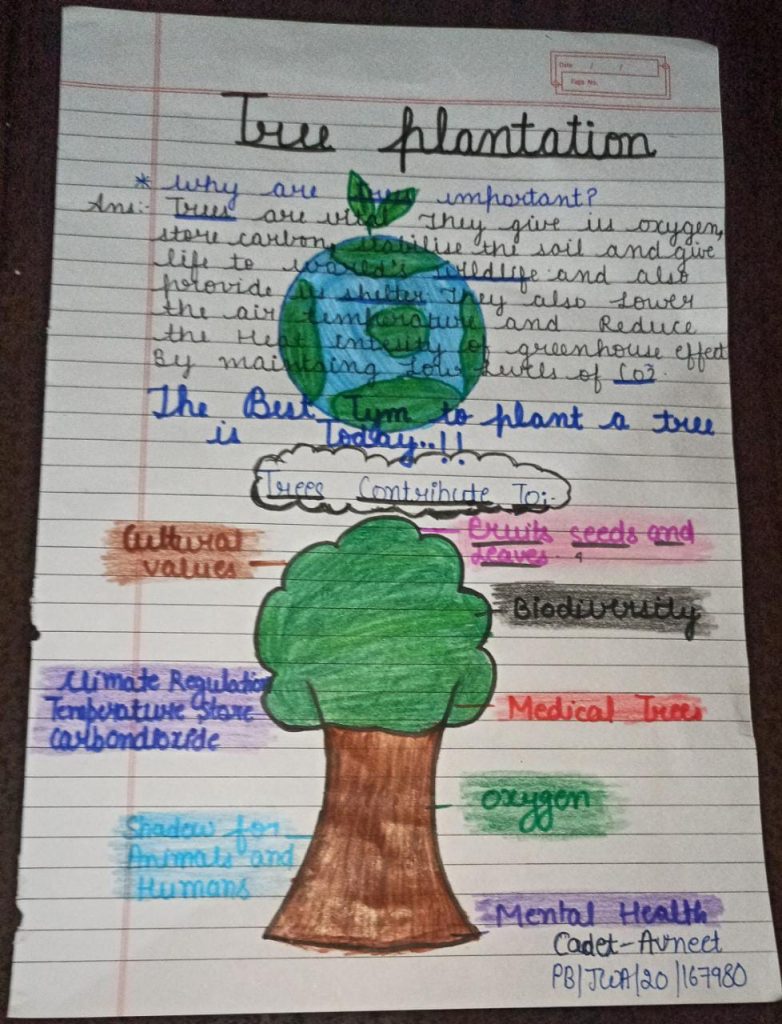 Date / /
Page No.
Tree plantation
* Why are trees important?
Ans:- Trees are vital They give us oxygen,
store carbon, stabilise the soil and give
life to world's wildlife and also
provide us shelter They also Lower
the air temperature and Reduce
the Heat intesity of greenhouse effect
By maintaing Low Levels of CO2.
The Best Tym to plant a tree
is Today..!!
Trees Contribute To:-
Cultural
values
Fruits seeds and
Leaves.
Biodiversity
Climate Regulation
Temperature Store
carbondioxide
Medical Trees
Oxygen
Shadow for
Animals and
Humans
Mental Health
Cadet-Avneet
PB/JWA/20/167980